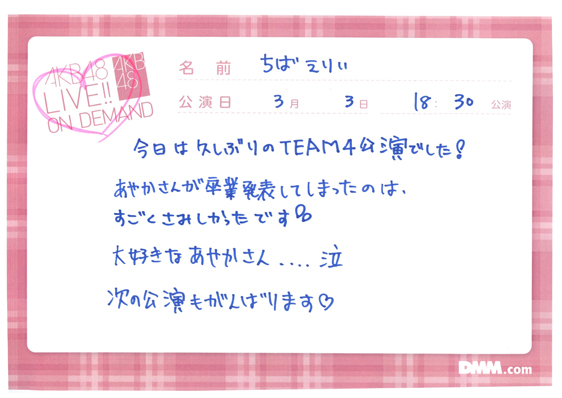 AKB48
LIVE!!
ON DEMAND
AKB
48
名前 ちばえりい
公演日 3月 3日 18:30 公演
今日は久しぶりのTEAM4公演でした!
あやかさんが卒業発表してしまったのは、
すごくさみしかったです
大好きなあやかさん....泣
次の公演もがんばります♡
DMM.com